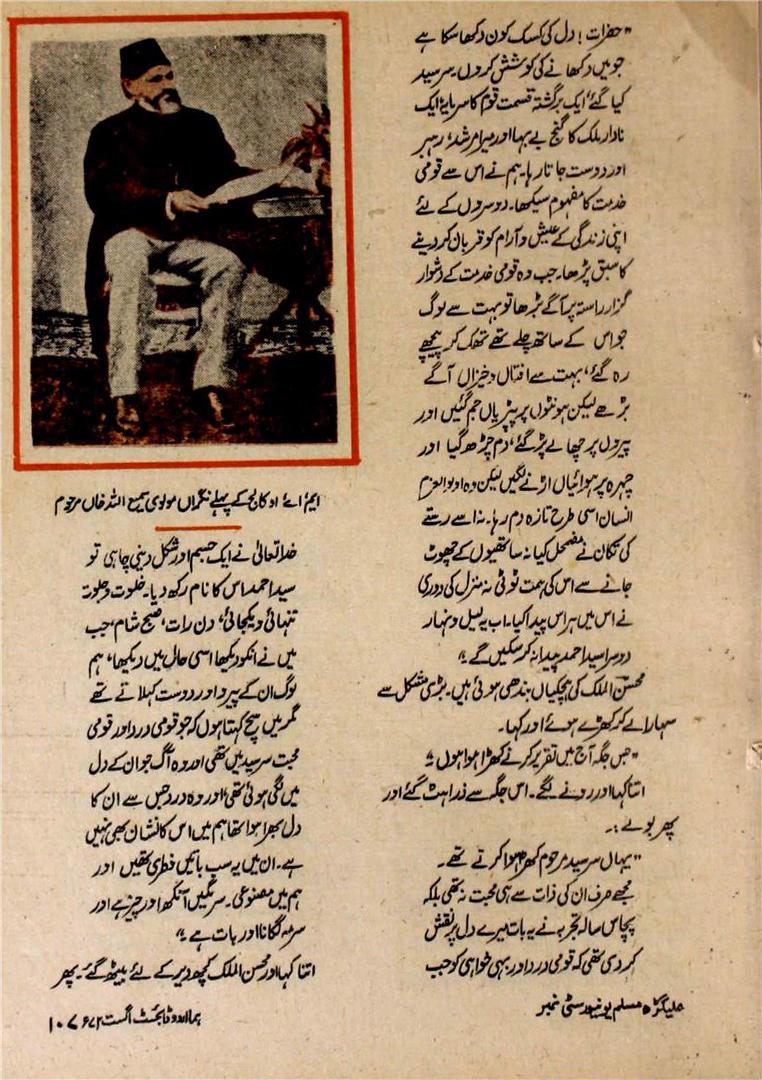 "حضرات! دل کی کسک کون دکھا سکا ہے
جو میں دکھانے کی کوشش کروں۔ سرسید
کیا گئے، ایک برگشتہ قسمت قوم کا سرمایۂ ایک
نادار ملک کا گنج بے بہا اور میرا مرشد، رہبر
اور دوست جاتا رہا۔ ہم نے اس سے قومی
خدمت کا مفہوم سیکھا۔ دوسروں کے لئے
اپنی زندگی کے عیش و آرام کو قربان کر دینے
کا سبق پڑھا۔ جب وہ قومی خدمت کے دشوار
گزار راستہ پر آگے بڑھا تو بہت سے لوگ
جو اس کے ساتھ چلے تھے تھک کر پیچھے
رہ گئے، بہت سے افتاں و خیزاں آگے
بڑھے لیکن ہونٹوں پر پپڑیاں جم گئیں اور
پیروں پر چھالے پڑ گئے، دم چڑھ گیا اور
چہرہ پر ہوائیاں اڑنے لگیں لیکن وہ اولو العزم
انسان اسی طرح تازہ دم رہا۔ نہ اسے رستے
کی تکان نے مضمحل کیا نہ ساتھیوں کے چھوٹ
جانے سے اس کی ہمت ٹوٹی نہ منزل کی دوری
نے اس میں ہراس پیدا کیا۔ اب یہ لیل و نہار
دوسرا سید احمد پیدا نہ کر سکیں گے۔"
محسن الملک کی ہچکیاں بندھی ہوئی ہیں۔ بڑی مشکل سے
سہارا لے کر کھڑے ہوئے اور کہا۔
"جس جگہ آج میں تقریر کرنے کھڑا ہوا ہوں۔"
اتنا کہا اور رونے لگے۔ اس جگہ سے ذرا ہٹ گئے اور
پھر بولے:۔
"یہاں سرسید مرحوم کھڑے ہوا کرتے تھے۔
مجھے صرف ان کی ذات سے ہی محبت نہ تھی بلکہ
پچاس سالہ تجربہ نے یہ بات میرے دل پر نقش
کر دی تھی کہ قومی درد اور بہی خواہی کو جب
ایم اے او کالج کے پہلے نگراں مولوی سمیع اللہ خاں مرحوم
خدا تعالیٰ نے ایک جسم اور شکل دینی چاہی تو
سید احمد اس کا نام رکھ دیا۔ خلوت و جلوت
تنہائی و یکجائی، دن رات، صبح شام، جب
میں نے انکو دیکھا اسی حال میں دیکھا، ہم
لوگ ان کے پیرو اور دوست کہلاتے تھے
مگر میں سچ کہتا ہوں کہ جو قومی درد اور قومی
محبت سرسید میں تھی اور وہ آگ جو ان کے دل
میں لگی ہوئی تھی اور وہ درد جس سے ان کا
دل بھرا ہوا تھا ہم میں اس کا نشان بھی نہیں
ہے۔ ان میں یہ سب باتیں فطری تھیں اور
ہم میں مصنوعی۔ سرمگیں آنکھ اور چیز ہے اور
سرمہ لگانا اور بات ہے۔"
اتنا کہا اور محسن الملک کچھ دیر کے لئے بیٹھ گئے۔ پھر
علیگڑھ مسلم یونیورسٹی نمبر
ہما اردو ڈائجسٹ اگست ۷۲ء ۱۰۷